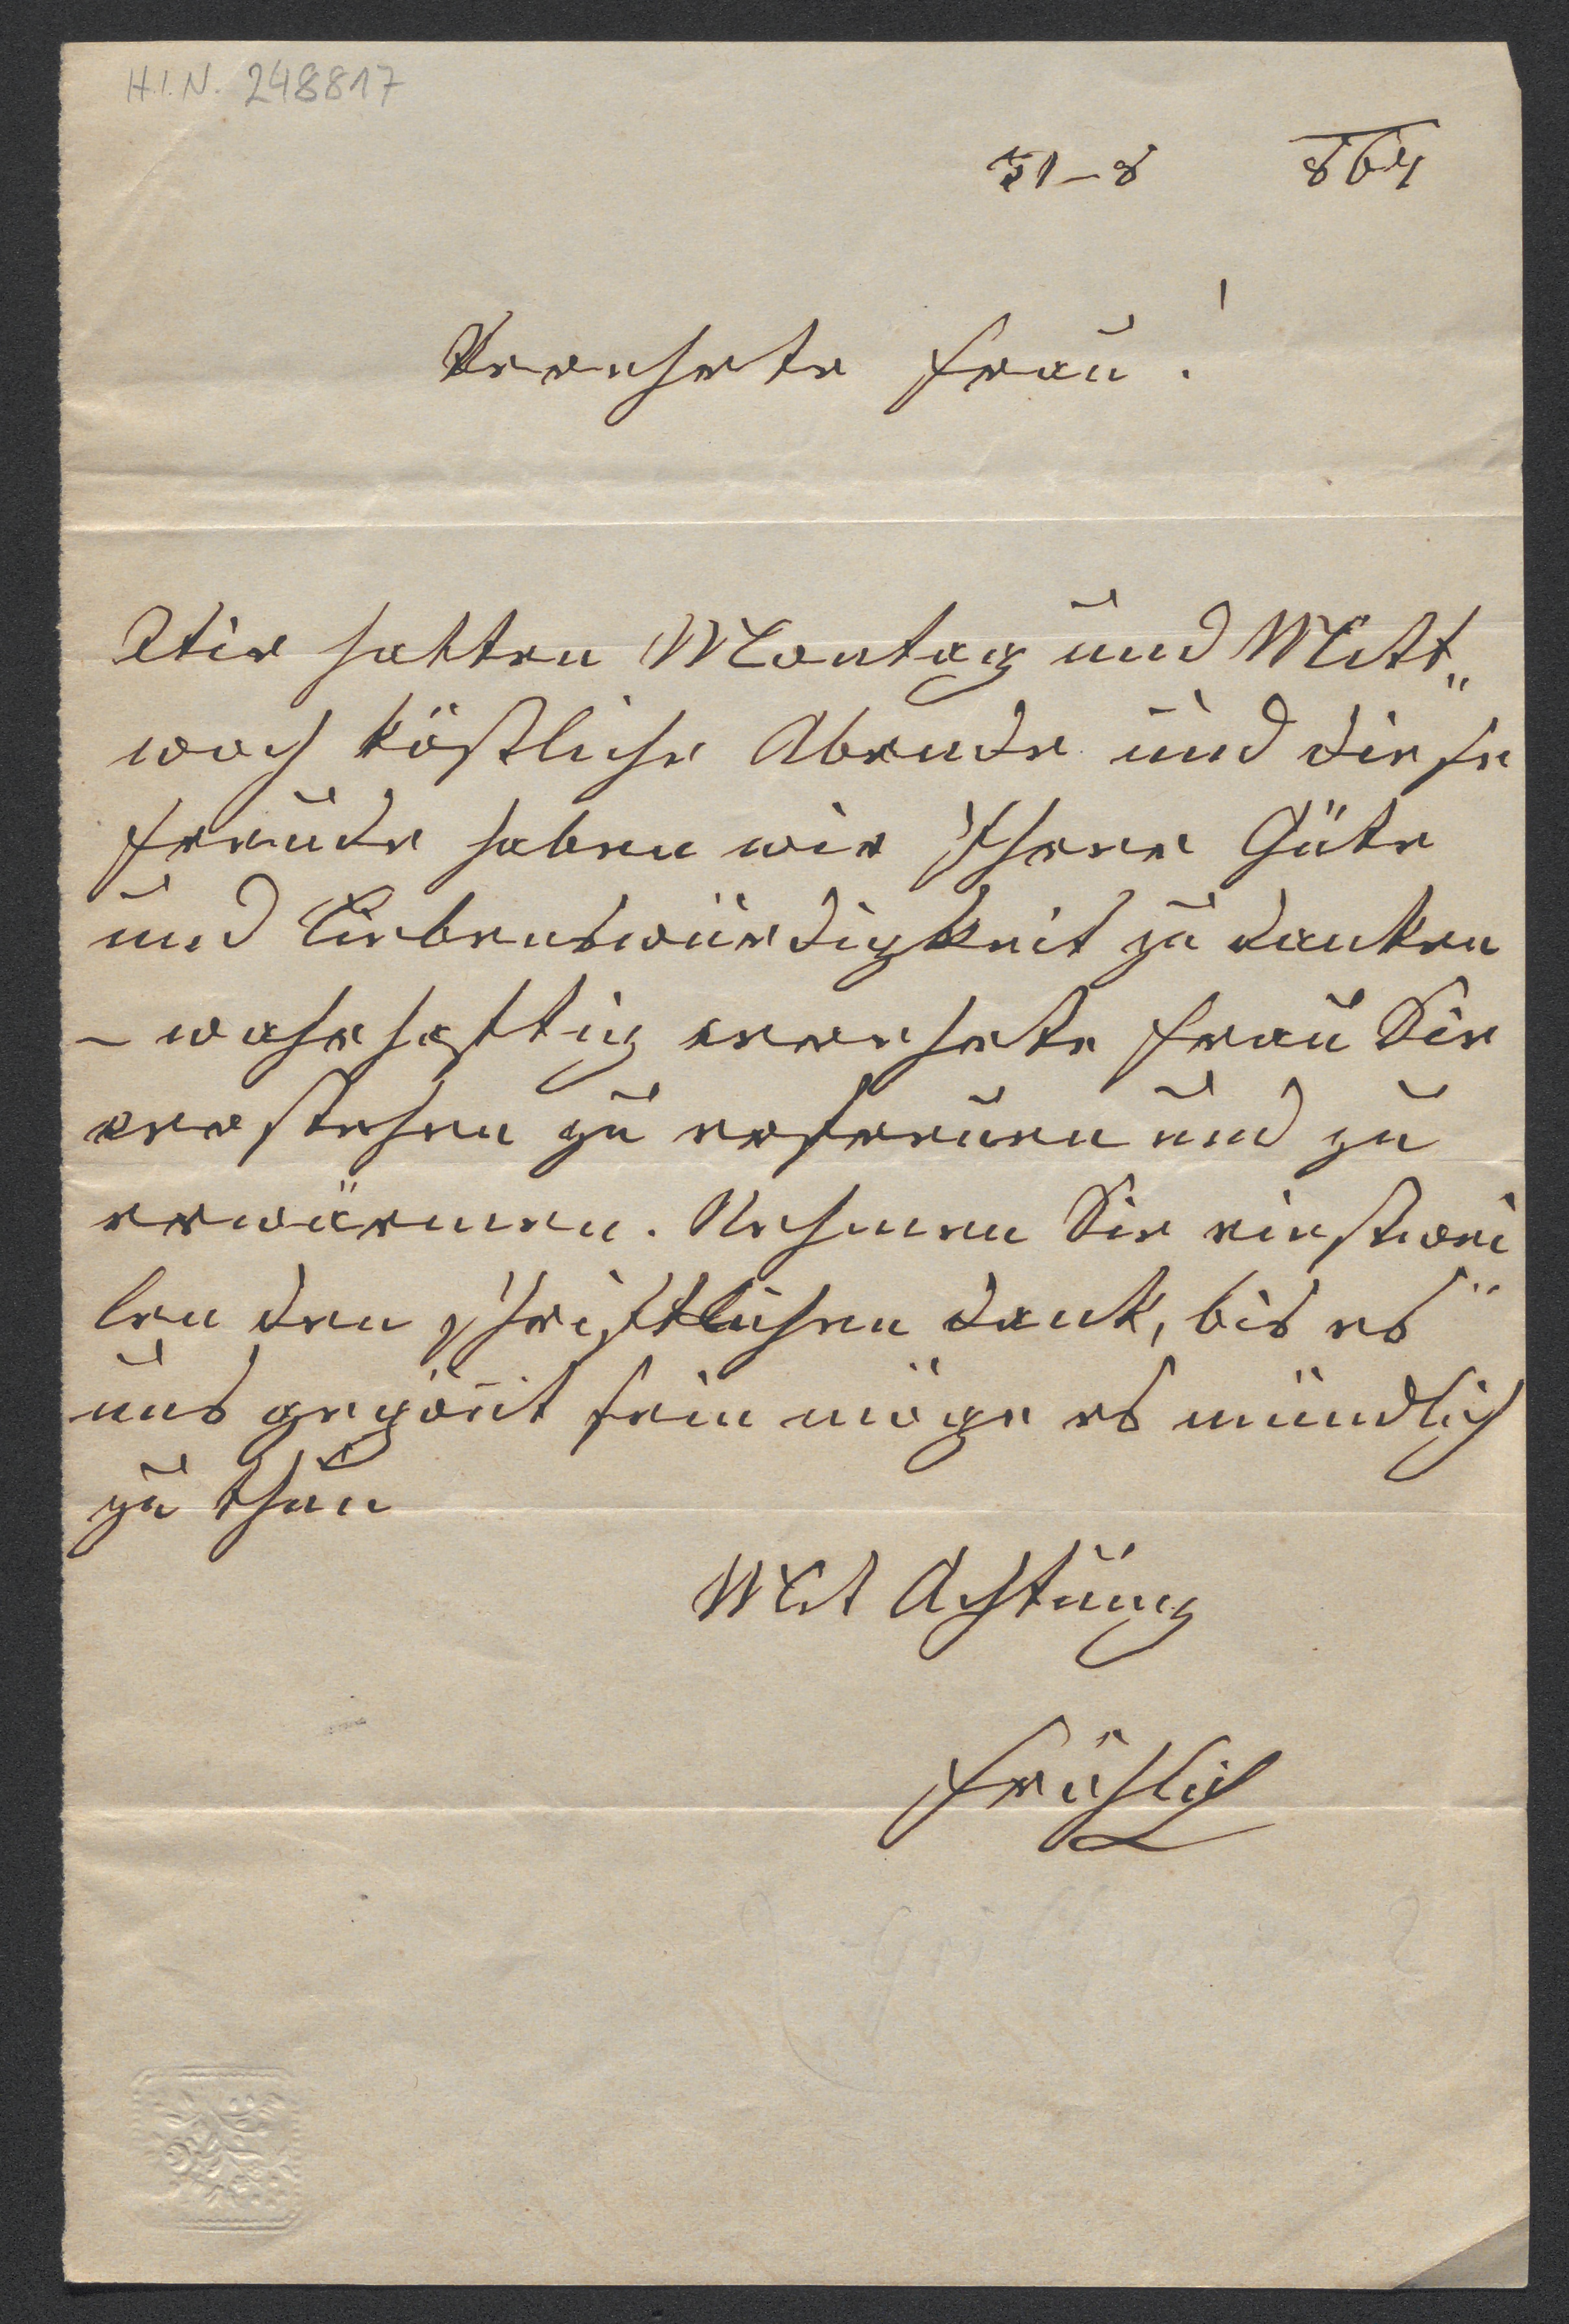 H.I.N. 248817
31–8 864
Verehrte Frau!
Wir hatten Montag und Mitt„
woch köstliche Abende und diese
Freude haben wir Ihrer Güte
und Liebenswürdigkeit zu danken
– wahrhaftig verehrte Frau Sie
verstehen zu erfreuen und zu
erwärmen. Nehmen Sie einstwei„
len den schriftlichen Dank, bis es
uns gegön̅t sein möge es mündlich
zu thun
Mit Achtung
Fröhlich